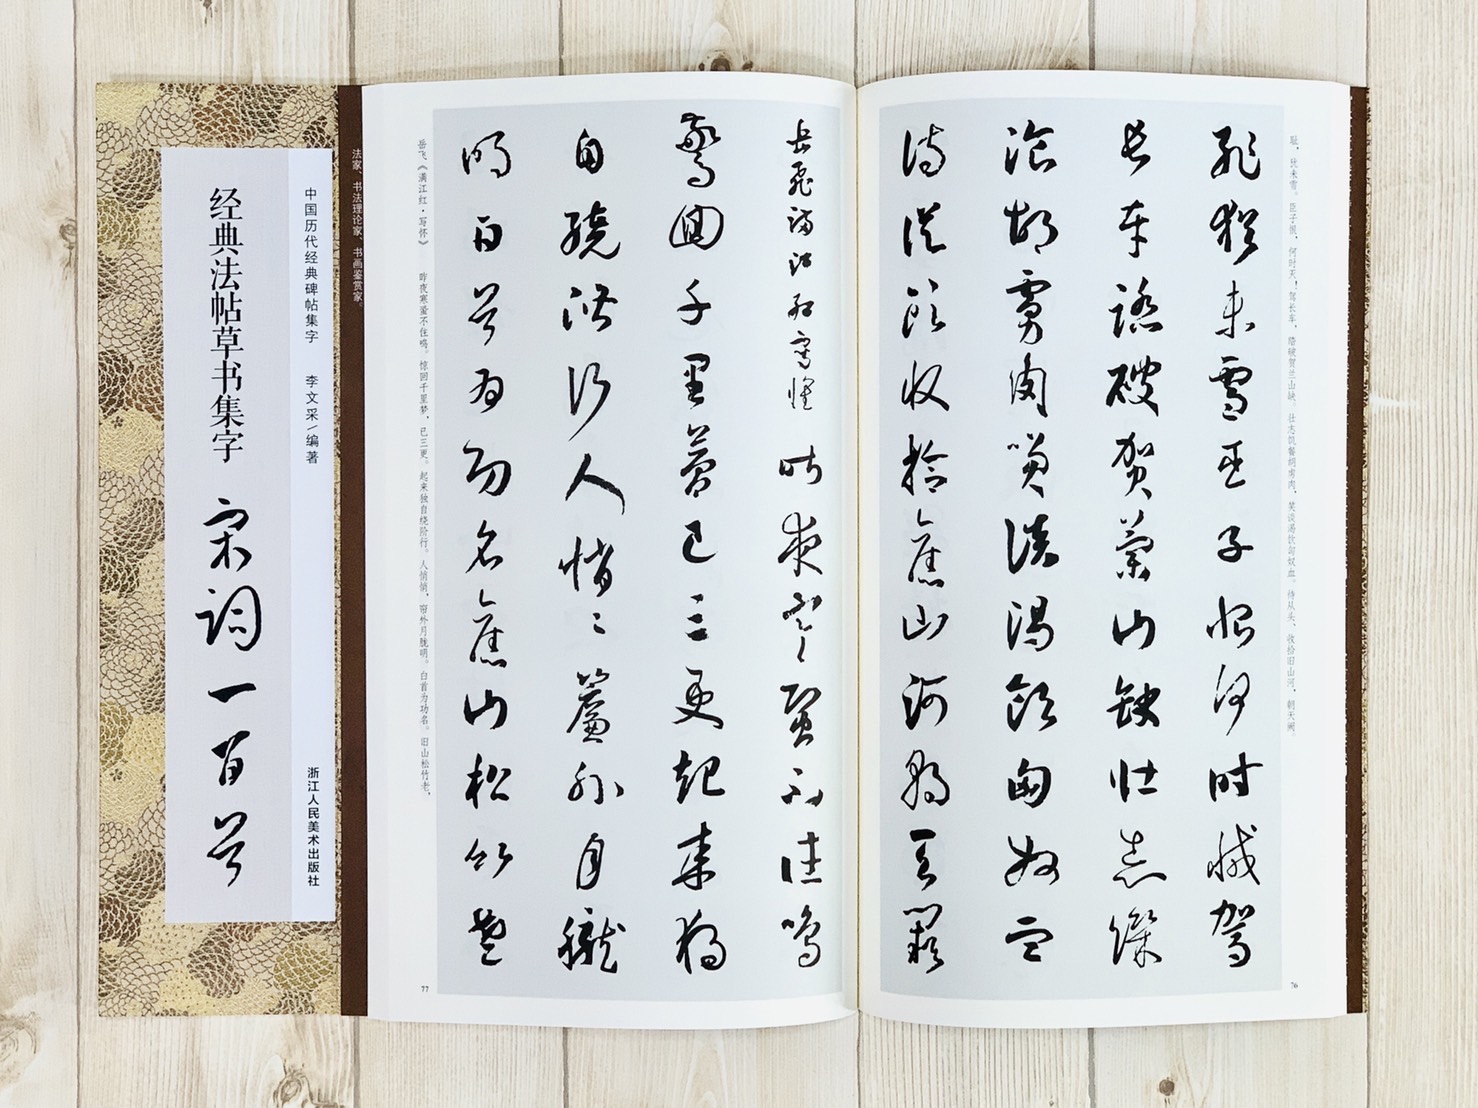 中国历代经典碑帖集字　李文采／编著
浙江人民美术出版社
经典法帖草书集字　宋词一百首
法家、书法理论家、书画鉴赏家。
耻，犹未雪。臣子恨，何时灭！驾长车，踏破贺兰山缺。壮志饥餐胡虏肉，笑谈渴饮匈奴血。待从头、收拾旧山河，朝天阙。
耻猶未雪臣子恨何時滅駕
長車踏破賀蘭山缺壯志飢
飡胡虜肉笑談渴飲匈奴血
待從頭收拾舊山河朝天闕
76
岳飛滿江紅寫懷　昨夜寒蛩不住鳴
驚回千里夢已三更起來獨
自繞階行人悄〻簾外月朧
明白首為功名舊山松竹老
岳飞《满江红·写怀》　昨夜寒蛩不住鸣。惊回千里梦，已三更。起来独自绕阶行。人悄悄，帘外月胧明。白首为功名。旧山松竹老，
77